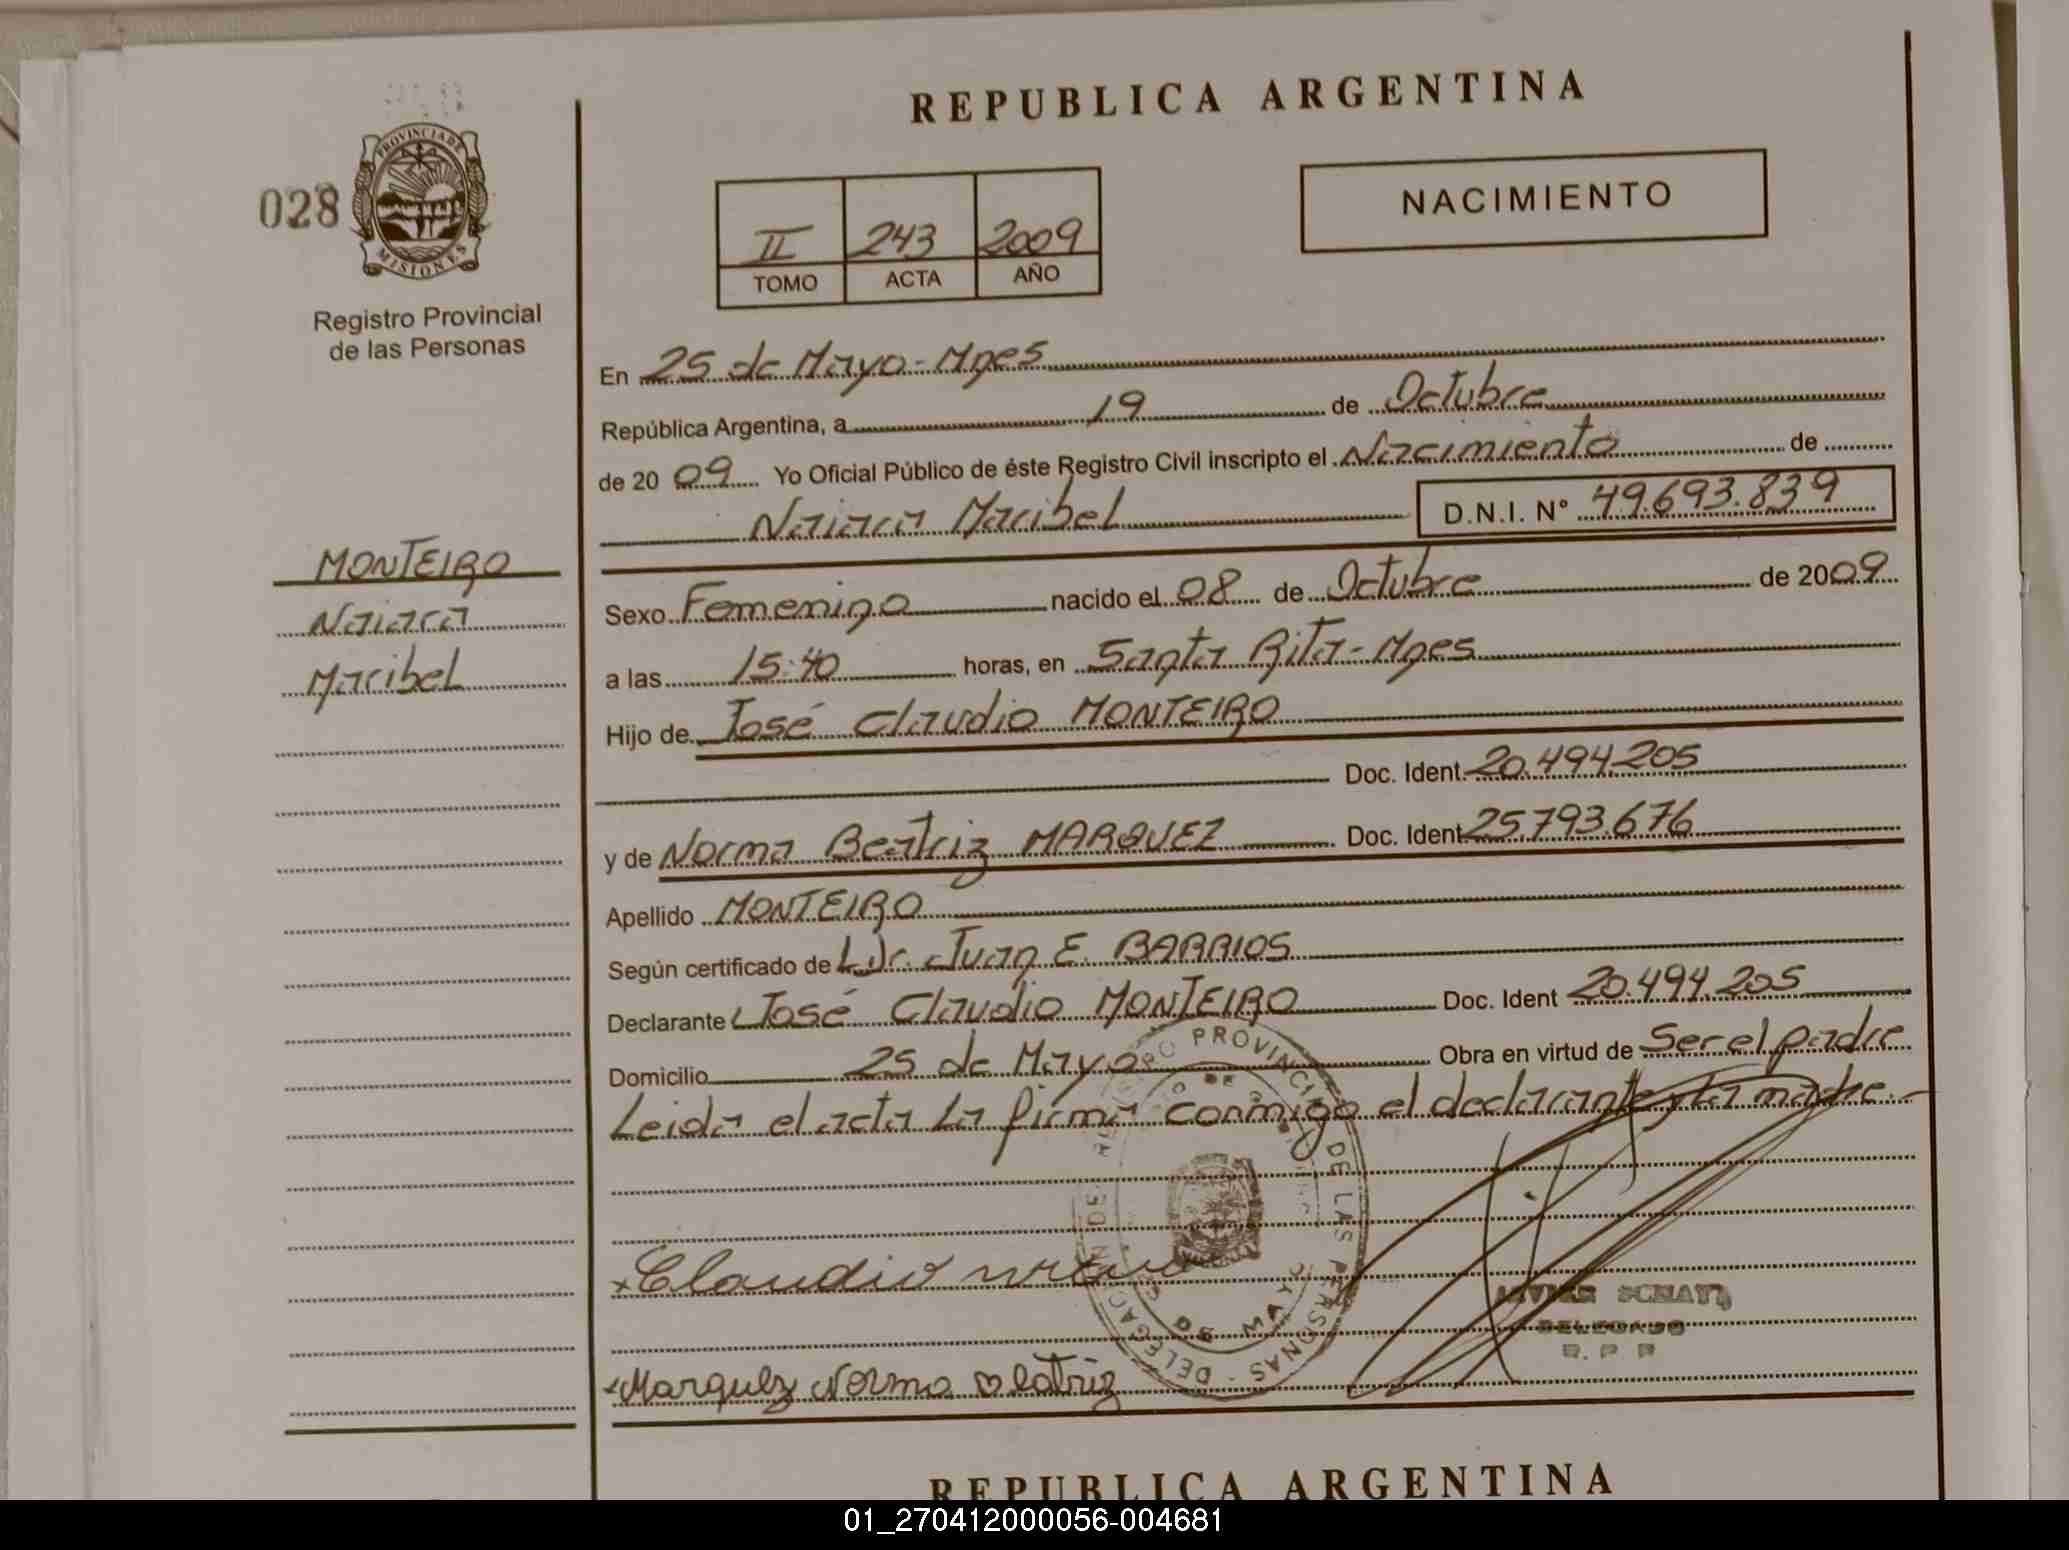 REPUBLICA ARGENTINA
028
PROVINCIA DE
MISIONES
Registro Provincial
de las Personas
II 243 2009
TOMO ACTA AÑO
NACIMIENTO
En 25 de Mayo-Mnes
República Argentina, a 19 de Octubre
de 2009 Yo Oficial Público de éste Registro Civil inscripto el Nacimiento de
Naiara Maribel D.N.I. Nº 49.693.839
MONTEIRO
Naiara
Maribel
Sexo Femenino nacido el 08 de Octubre de 2009
a las 15:40 horas, en Santa Rita-Mnes
Hijo de José Claudio MONTEIRO
Doc. Ident. 20.494.205
y de Norma Beatriz MARQUEZ Doc. Ident 25.793.676
Apellido MONTEIRO
Según certificado de Juan E. BARRIOS
Declarante José Claudio MONTEIRO Doc. Ident 20.494.205
Domicilio 25 de Mayo Obra en virtud de Ser el padre
Leida el acta La firma conmigo el declarante y La madre.-
PROVINCIAL DE LAS PERSONAS - DELEGACION DE
DE MAYO
x Claudio
JAVIER
DELEGADO
R. P. P
x Marquez Norma Beatriz
REPUBLICA ARGENTINA
01_270412000056-004681